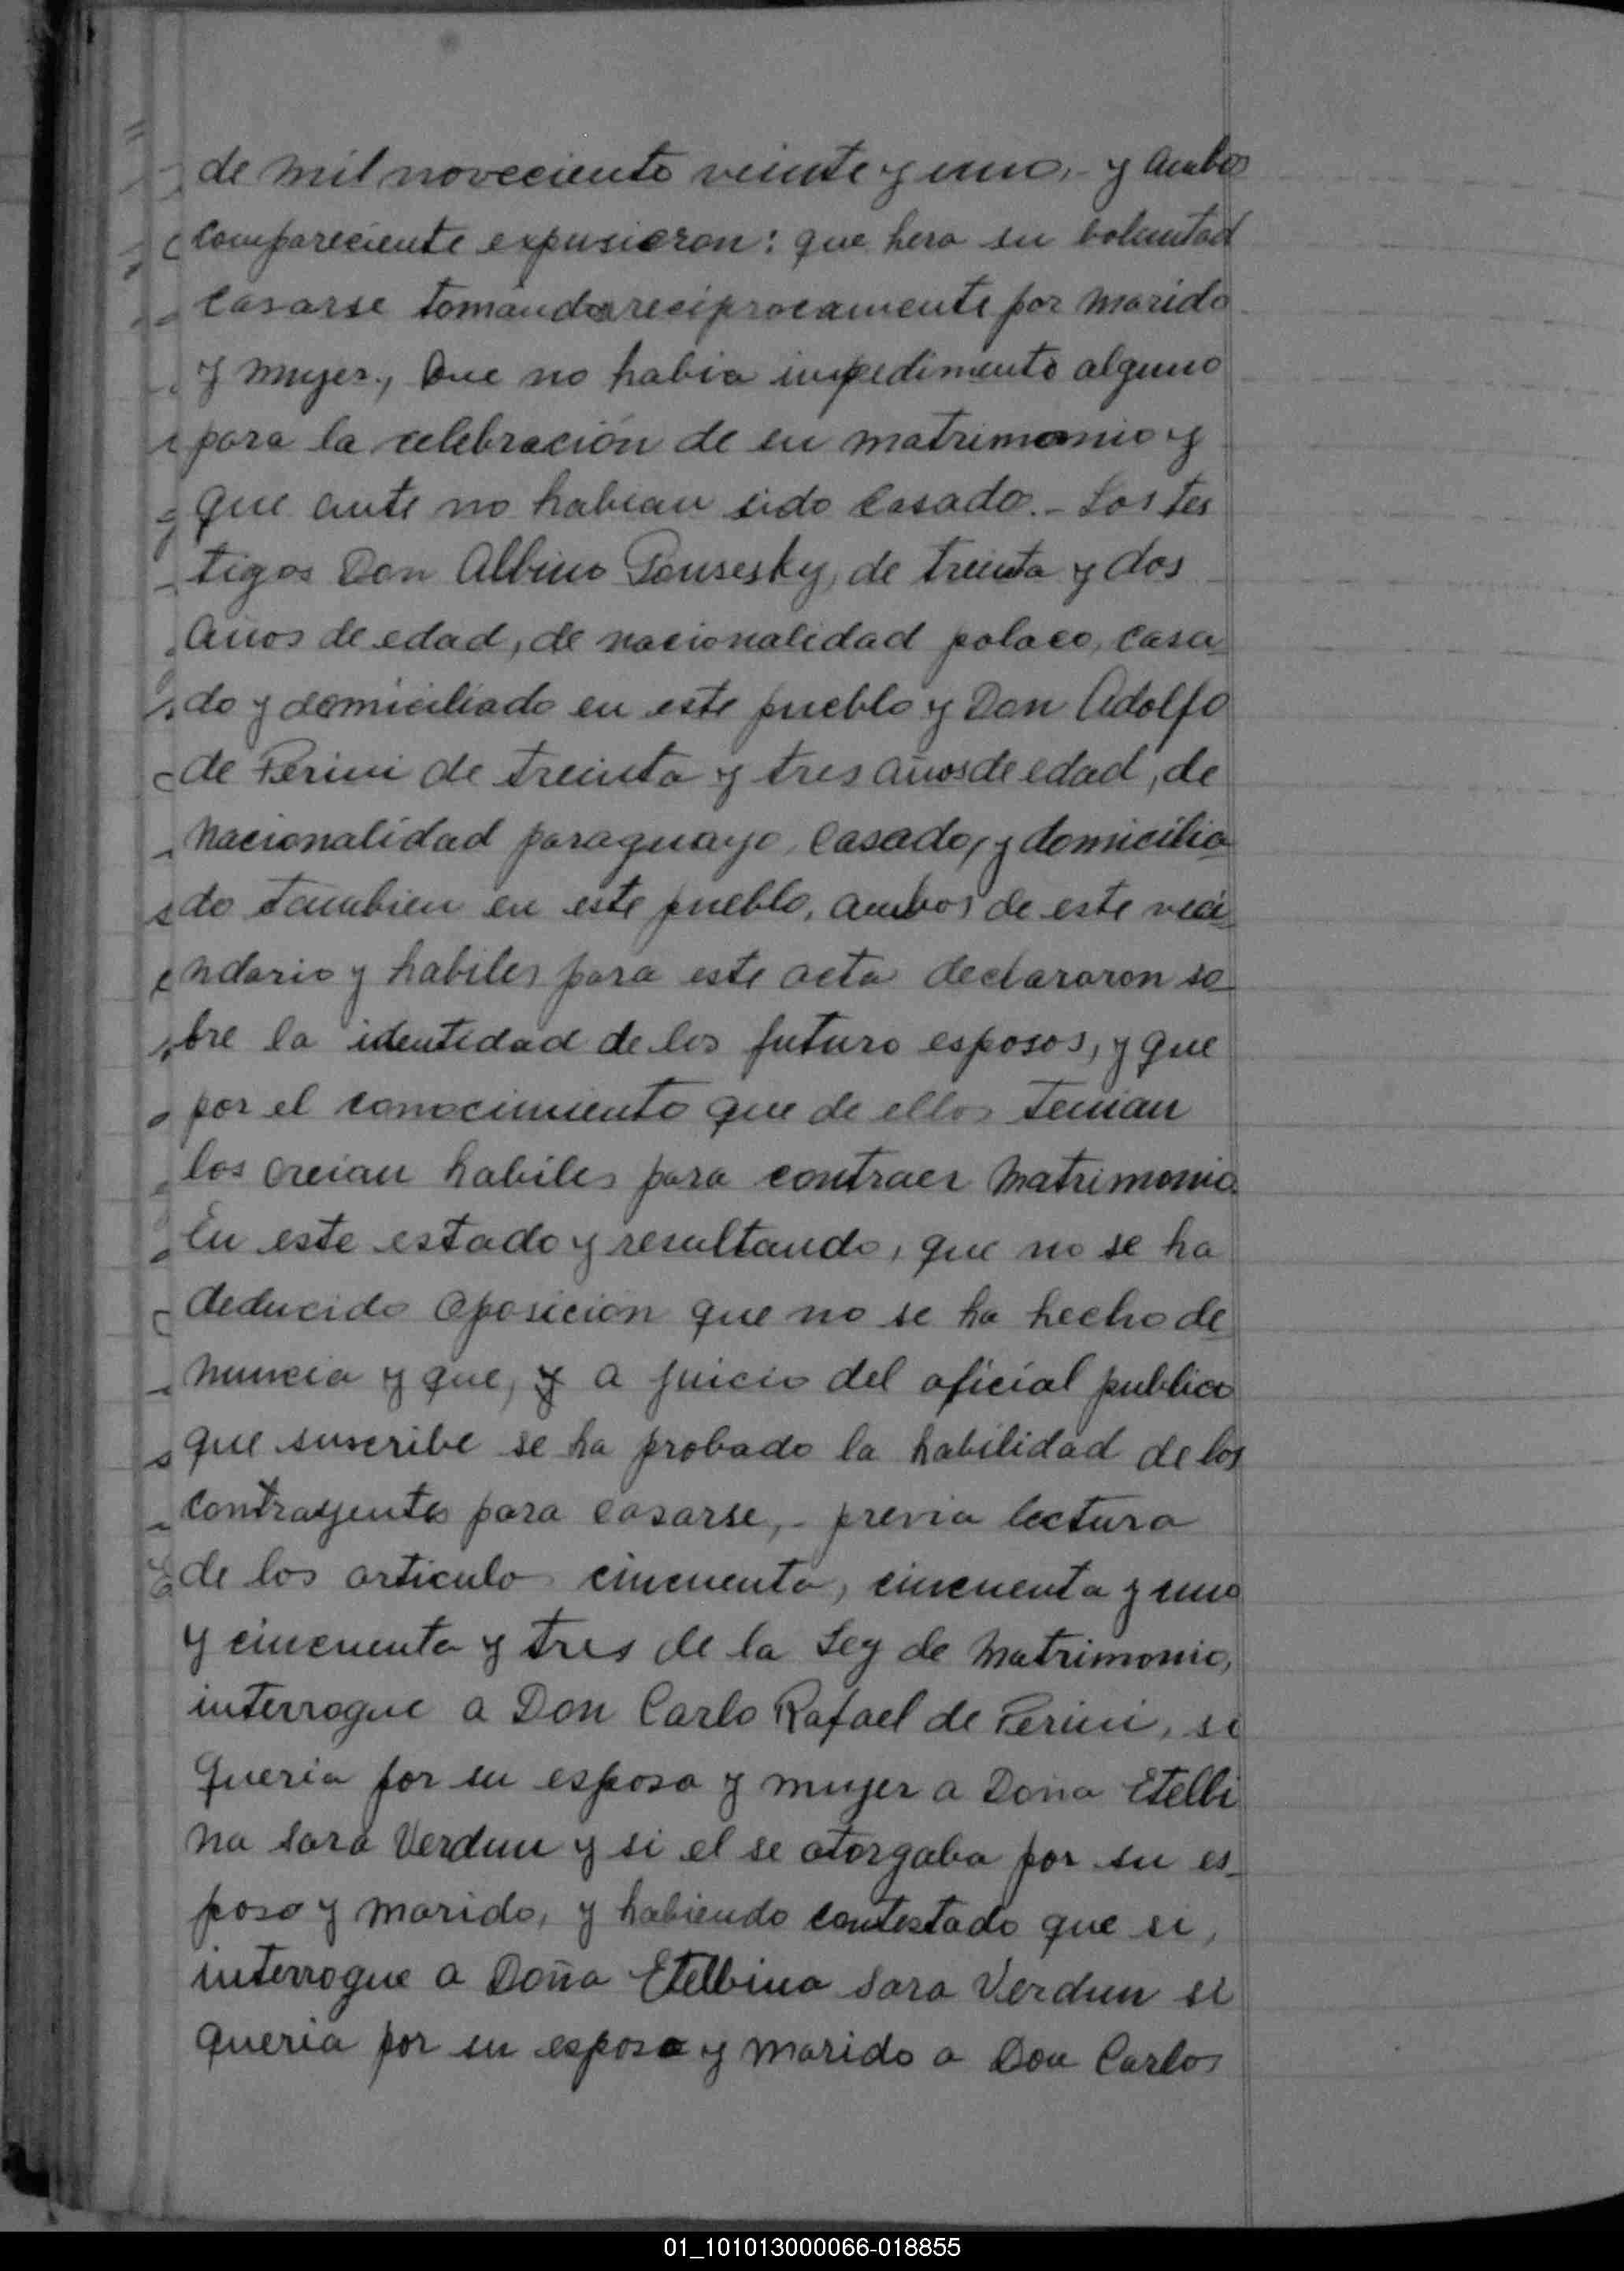 de mil noveciento veinte y uno, - y ambos
compareciente expusieron: que hera su boluntad
casarse tomando reciprocamente por marido
y mujer, Que no habia impedimento alguno
para la celebración de su matrimonio y
que ante no habian sido casado. - Los tes
tigos Don Albino Ponsesky, de treinta y dos
años de edad, de nacionalidad polaco, casa
do y domiciliado en este pueblo y Don Adolfo
de Perini de treinta y tres años de edad, de
nacionalidad paraguayo, casado, y domicilia
do tambien en este pueblo, ambos de este veci
ndario y habiles para este acta declararon so
bre la identidad de los futuro esposos, y que
por el conocimiento que de ellos tenian
los creian habiles para contraer matrimonio.
En este estado y resultando, que no se ha
deducido oposicion que no se ha hecho de
nuncia y que, y a juicio del oficial publico
que suscribe se ha probado la habilidad de los
contrayentes para casarse, - previa lectura
de los articulo cincuenta, cincuenta y uno
y cincuenta y tres de la Ley de Matrimonio,
interrogue a Don Carlo Rafael de Perini, si
queria por su esposa y mujer a Doña Etelbi
na Sara Verdun y si el se otorgaba por su es-
poso y marido, y habiendo contestado que si,
interrogue a Doña Etelbina Sara Verdun si
queria por su esposo y marido a Don Carlos
01_101013000066-018855